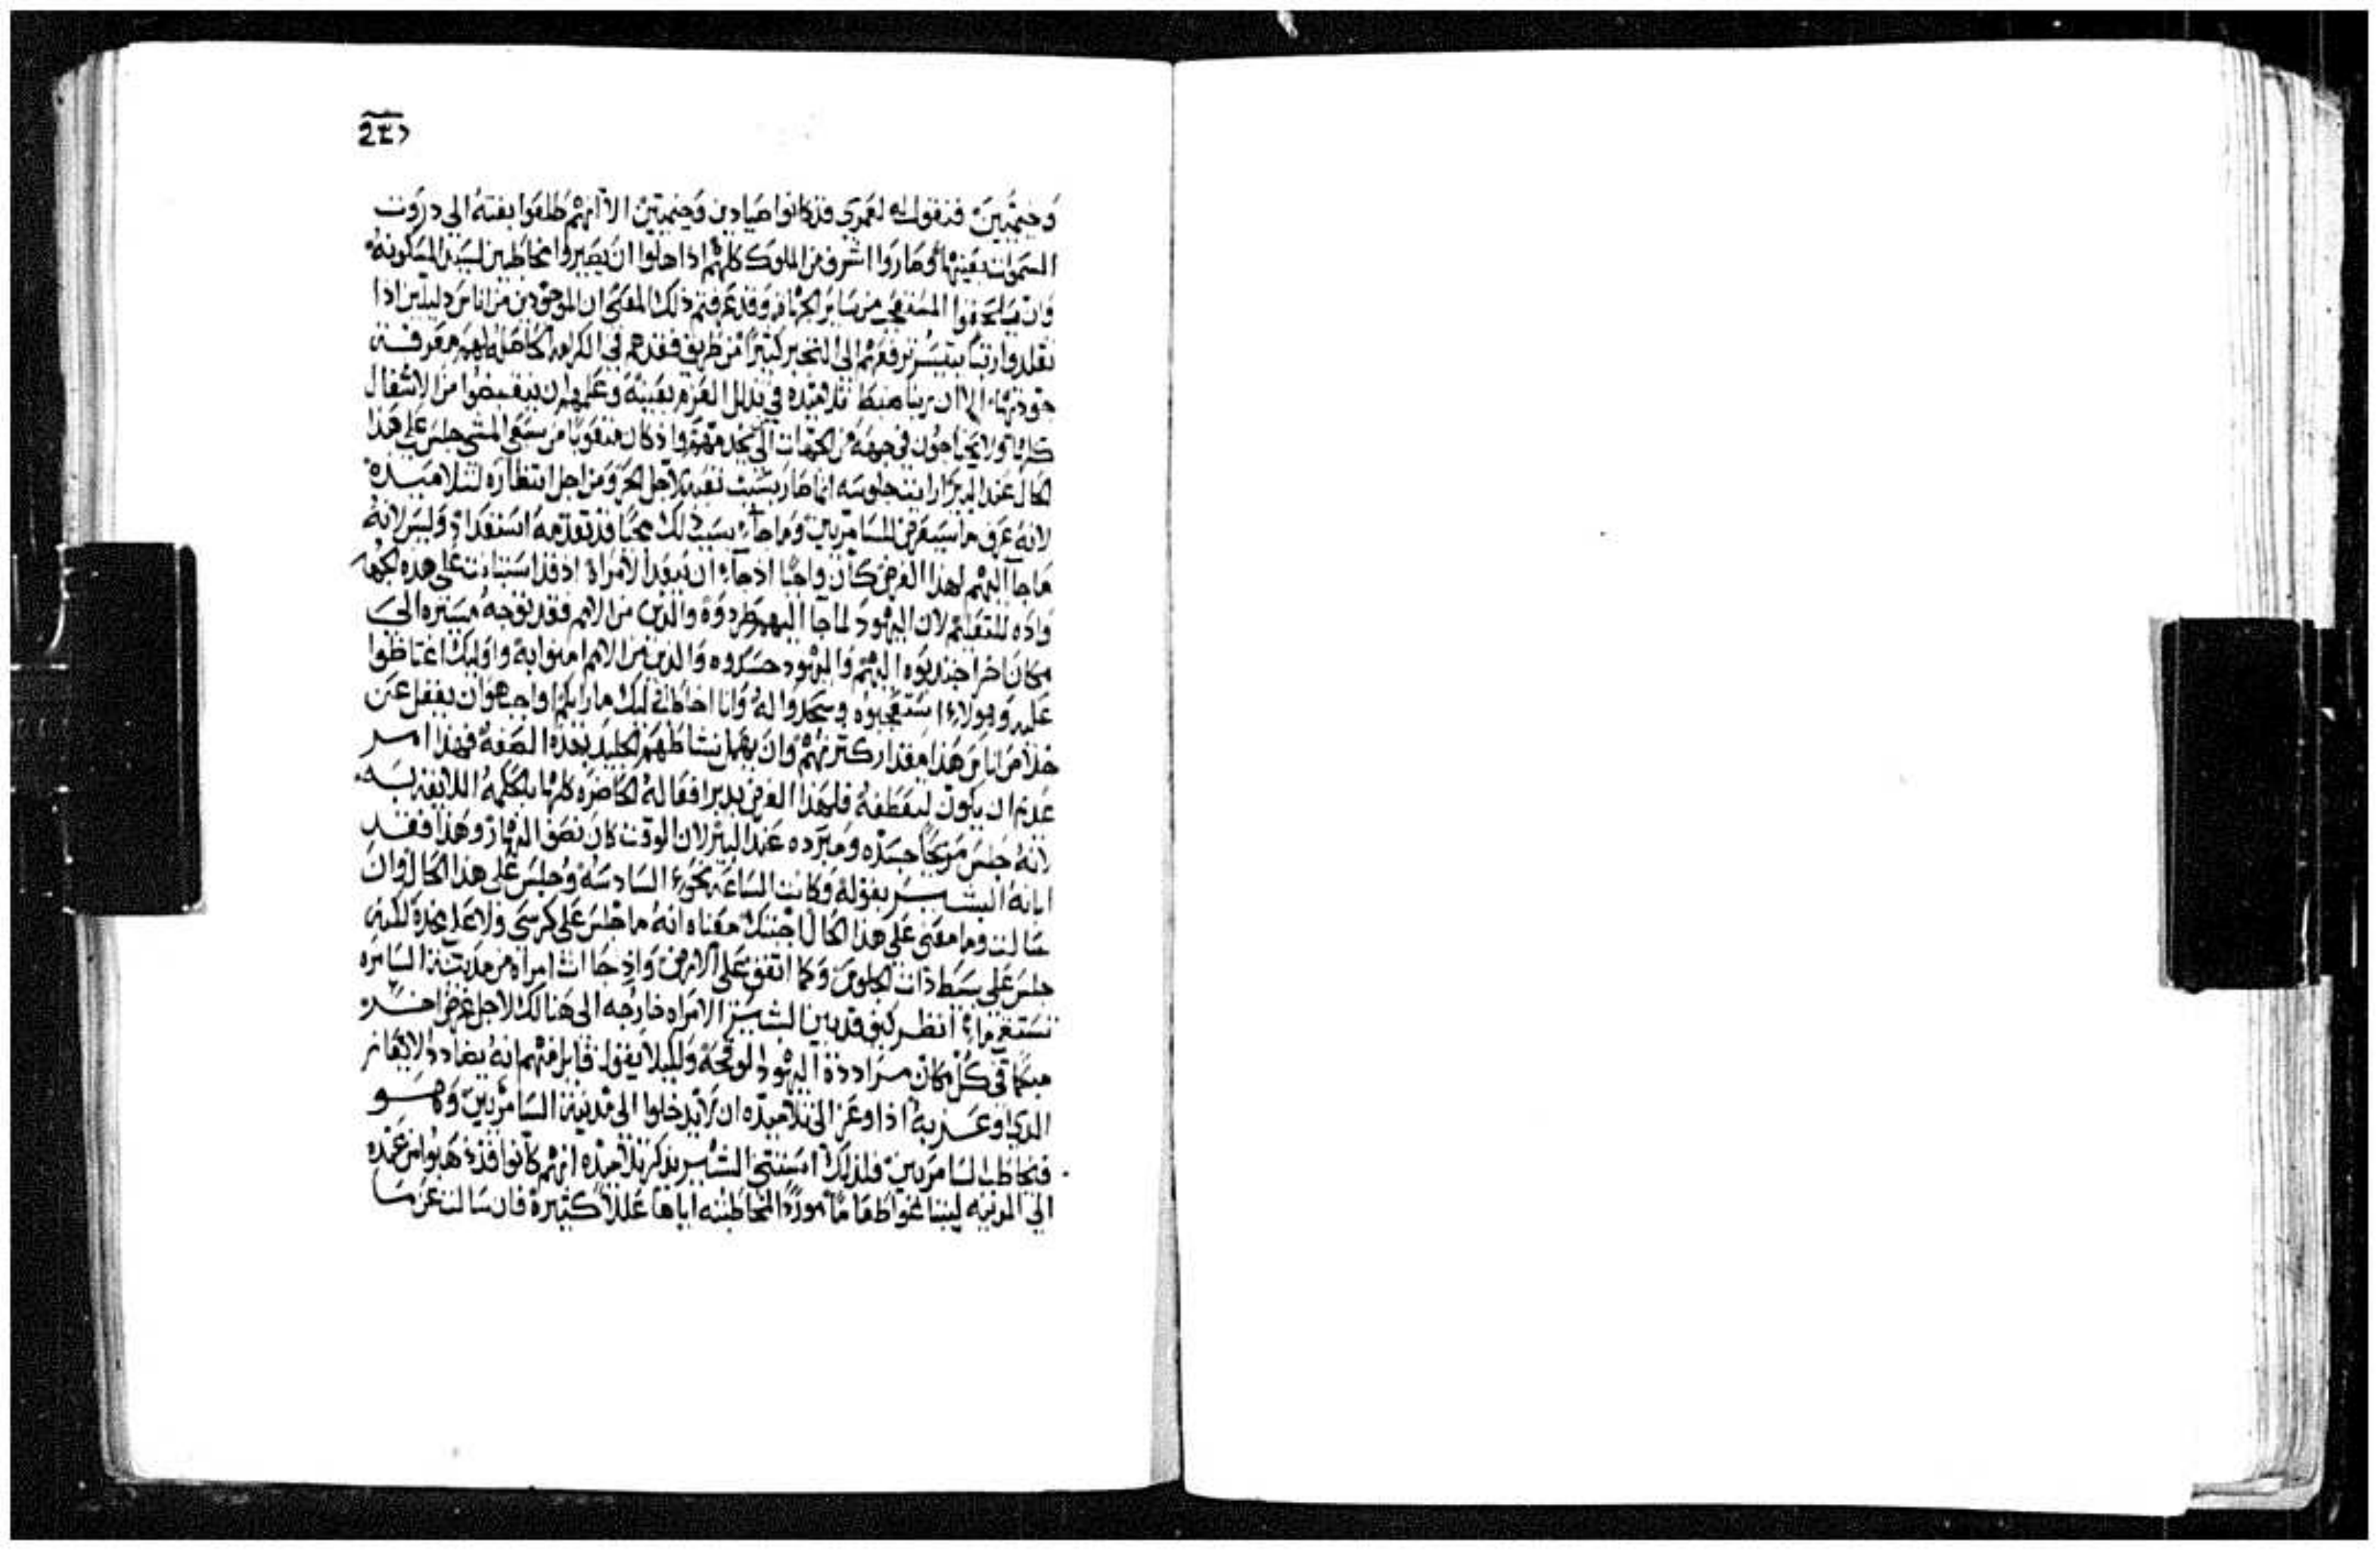 وخيميين فنقول له لعمري قد كانوا صيادين وخيميين الا انهم طلعوا بغتة الى درّوت
السموات بعينها وصاروا اشرف من الملوك كلهم اذا هلوا ان يصيروا مخاطبين لسيد المسكونة
وان يتبعوا من سائر الجهات وقد عرفتم ذلك المعنى ان الموجودين من اناس دليلين اذا
تقلدوا رتبا يتيسر ترفعهم الى التجبر كثيرا من طريق فقدهم في الكرامه الحاصله لهم معرفة
جودتها الا ان ربنا ضبط تلاميذه في تذلل العزم بعينه وعلمهم ان ينقبضوا من الاشغال
كلها ولا يحتاجون في جهة من الجهات الى خدمتهم واذ كان متعوبا من سعي المشي جلس على هذا
الحال عند البير اراايت جلوسه انما صار بسبب تعبه لاجل الحر ومن اجل انتظاره لتلاميذه
لانه عرف ما سيعرض للسامريين وما جاء بسبب ذلك مجيا قد تقدمه استعداد وليس لانه
ما جا اليهم لهذا الغرض كان واجبا اذ جاء ان تبعد الامراة اذ قد استبانت على هذه الجهة
واده للتعليم لان اليهود لما جا اليهم طردوه والذين من الامم فقد توجه مسيره الى
مكان اخر اجتذبوه اليهم واليهود حسدوه والذين من الامم امنوا به واوليك اغتاظوا
عليه وهولاء استعجبوه وسجدوا له وانا اخاطبك ما رايكم اواجب هو ان يغفل عن
خلاص اناس هذا مقدار كثرتهم وان يهمل نشاطهم الجليل بهذه الصفة فهذا امر
عدم ان يكون لتعطفه فلهذا الغرض يدبر افعاله الحاضره كلها بالحكمة اللايقة به
لانه جلس مريحا جسده ومبرده عند البئر لان الوقت كان نصف النهار وهذا فقد
ابانه البشير بقوله وكانت الساعة نحوء السادسة وجلس على هذا الحال وان
سالت وما معنى على هذا الحال اجبتك معناه انه ما جلس على كرسي ولا على مخدة لكنه
جلس على بسيط ذات الجلوس وكما اتفق على الارض واذ جاات امراة من مدينة السامره
تستقي ماء انظر كيف قد بين البشير الامراه خارجه الى هنالك لاجل غرض اخر
مبكتا في كل مكان مراددة اليهود الوقحة وليلا يقول قايل منهم انه يضادد الايعاز
الذي اوعز به اذا وعز الى تلاميذه ان لا يدخلوا الى مدينة السامريين وهو
فيخاطب السامريين فلذلك استثنى البشير بذكر تلاميذه انهم كانوا قد ذهبوا من عنده
الى المدينه ليبتاعوا طعاما موردا لمخاطبته اياها عللا كثيرة فان سالت عن ما